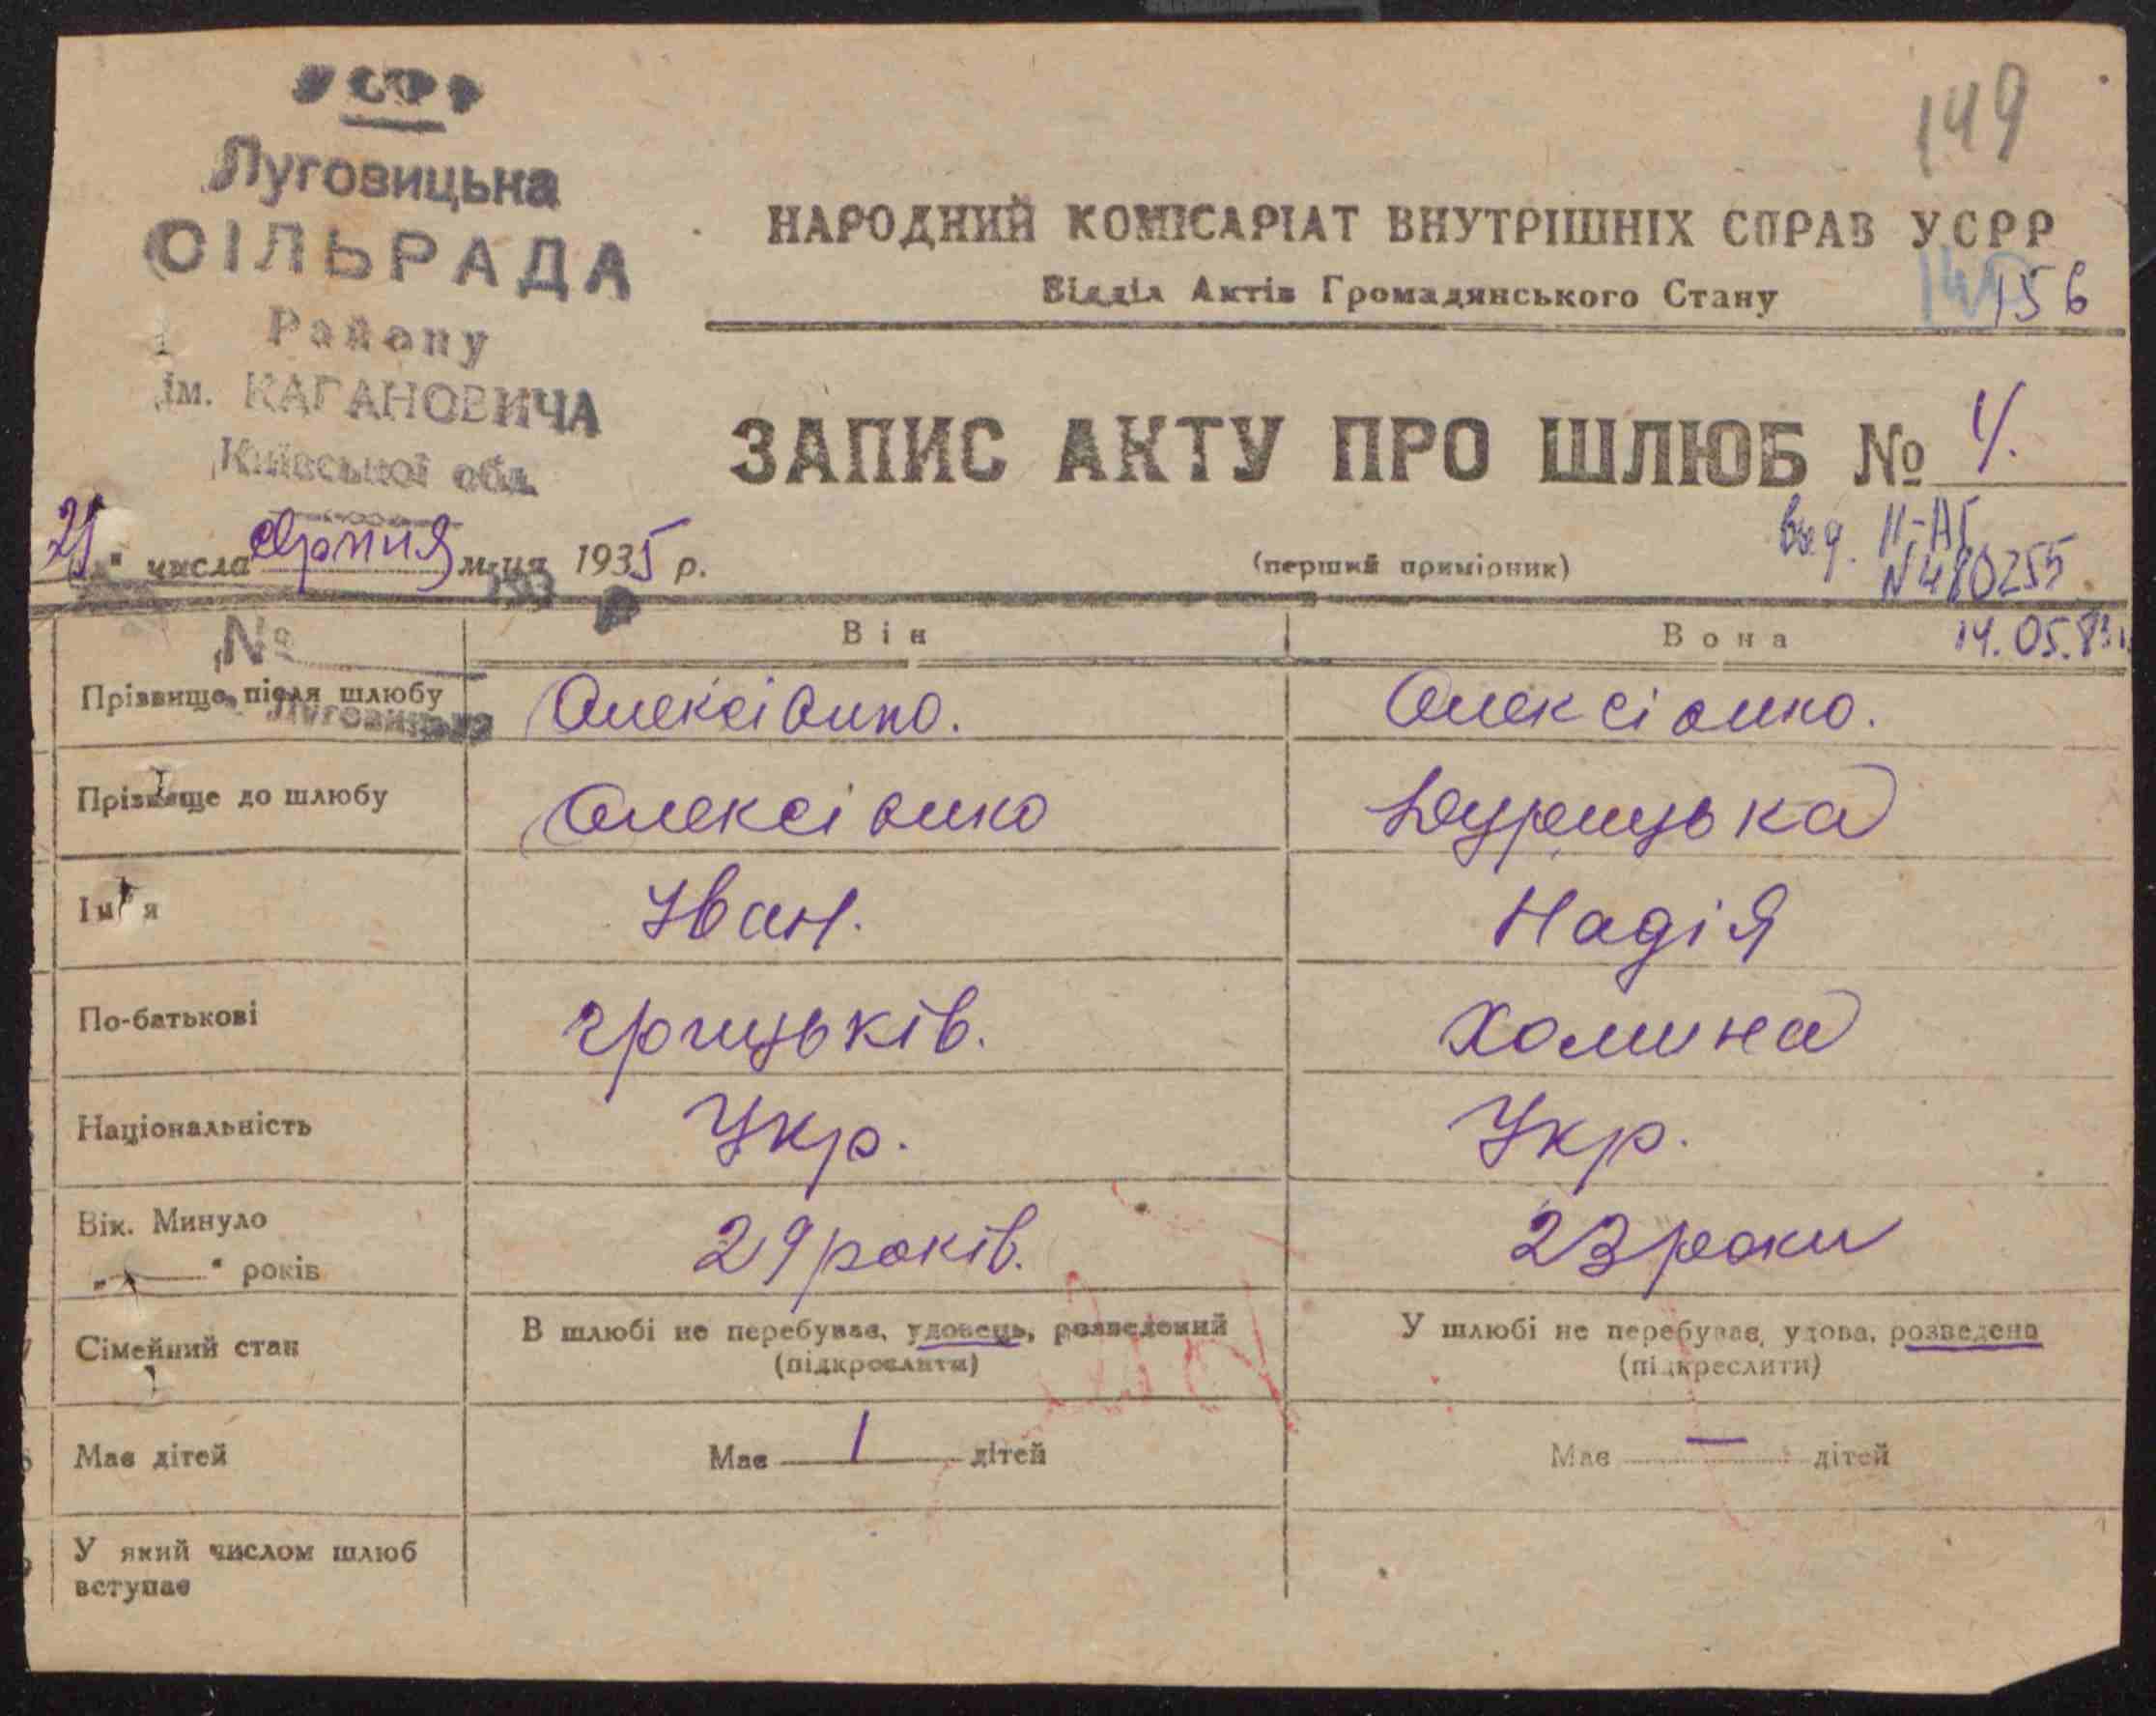 УСРР
149
Луговицька
СІЛЬРАДА
Району
ім. КАГАНОВИЧА
Київської обл.
НАРОДНИЙ КОМІСАРІАТ ВНУТРІШНІХ СПРАВ УСРР
Відділ Актів Громадянського Стану
156
ЗАПИС АКТУ ПРО ШЛЮБ № 4.
21 " числа серпня м-ця 1935 р.
(перший примірник)
выд. II-
N 480255
14.05.83
193
№
Він
Вона
Прізвище після шлюбу
Луговицька
Олексієнко.
Олексієнко.
Прізвище до шлюбу
Олексієнко
Дурницька
Ім'я
Іван.
Надія
По-батькові
Грицьків.
Хомина
Національність
Укр.
Укр.
Вік. Минуло
" років
29 років.
23 роки
Сімейний стан
В шлюбі не перебував, удовець, розведений
(підкреслити)
У шлюбі не перебуває, удова, розведена
(підкреслити)
Має дітей
Має 1 дітей
Має — дітей
У який числом шлюб
вступає